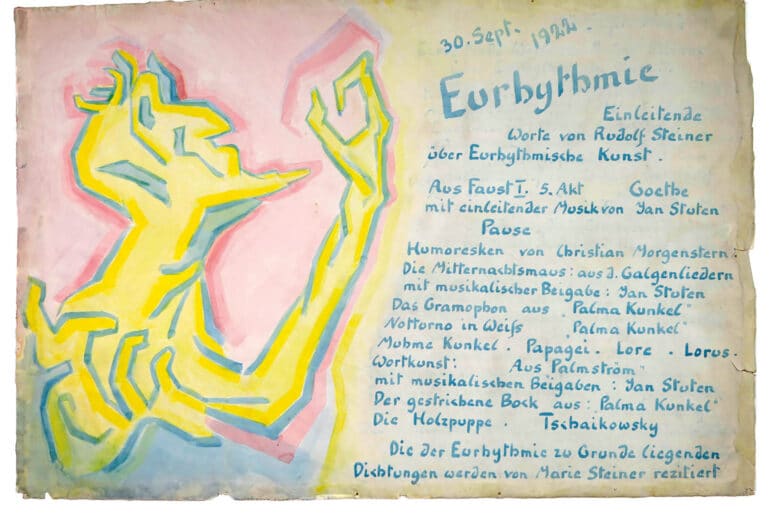 30. Sept. 1922.
Eurhythmie
Einleitende
Worte von Rudolf Steiner
über Eurhythmische Kunst.
Aus Faust I. 5. Akt Goethe
mit einleitender Musik von Jan Stuten
Pause
Humoresken von Christian Morgenstern:
Die Mitternachtsmaus: aus d. Galgenliedern
mit musikalischer Beigabe: Jan Stuten
Das Gramophon aus „Palma Kunkel"
Notturno in Weiß „Palma Kunkel"
Muhme Kunkel. Papagei. Lore. Lorus.
Wortkunst: Aus Palmström"
mit musikalischen Beigaben: Jan Stuten
Der gestrichene Bock aus: „Palma Kunkel"
Die Holzpuppe. Tschaikowsky
Die der Eurhythmie zu Grunde liegenden
Dichtungen werden von Marie Steiner rezitiert